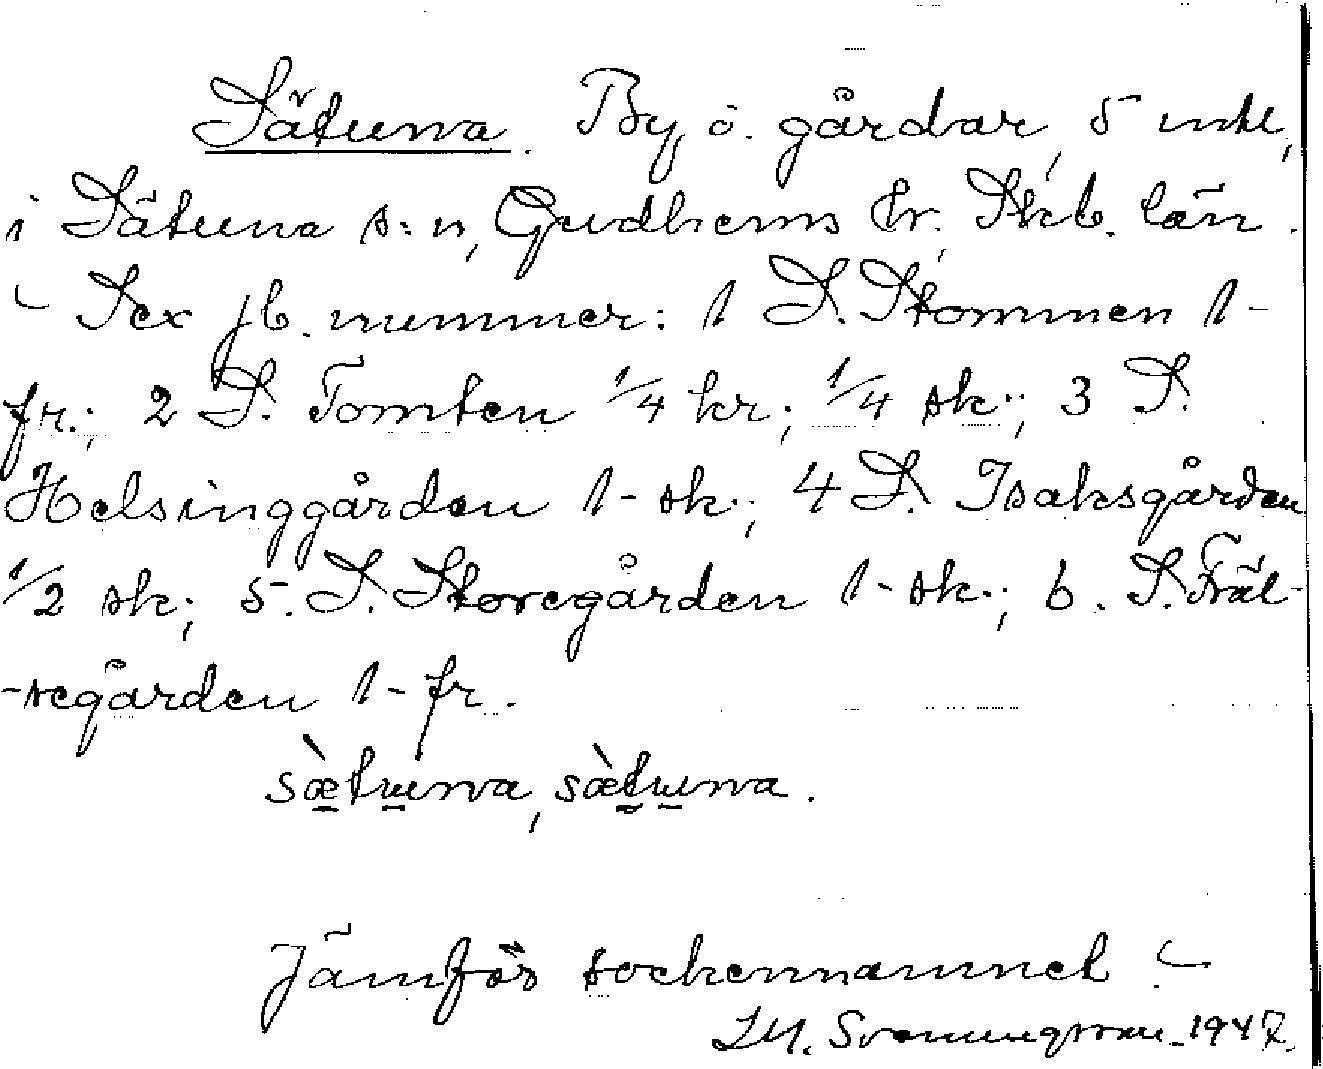 Sätuna. By o. gårdar, 5 mtl,
i Sätuna s:n, Gudhems hr, Skb. län.
- Sex jb. nummer: 1 S. Stommen 1-
fr.; 2 S. Tomten 1/4 kr; 1/4 sk.; 3 S.
Helsinggården 1- sk.; 4 S. Isaksgården
1/2 sk; 5. S. Storegården 1- sk.; 6. S. Fräl-
-segården 1- fr.
sætuna, sætuna.
Jämför sockennamnet. -
Svenningsson 1947.